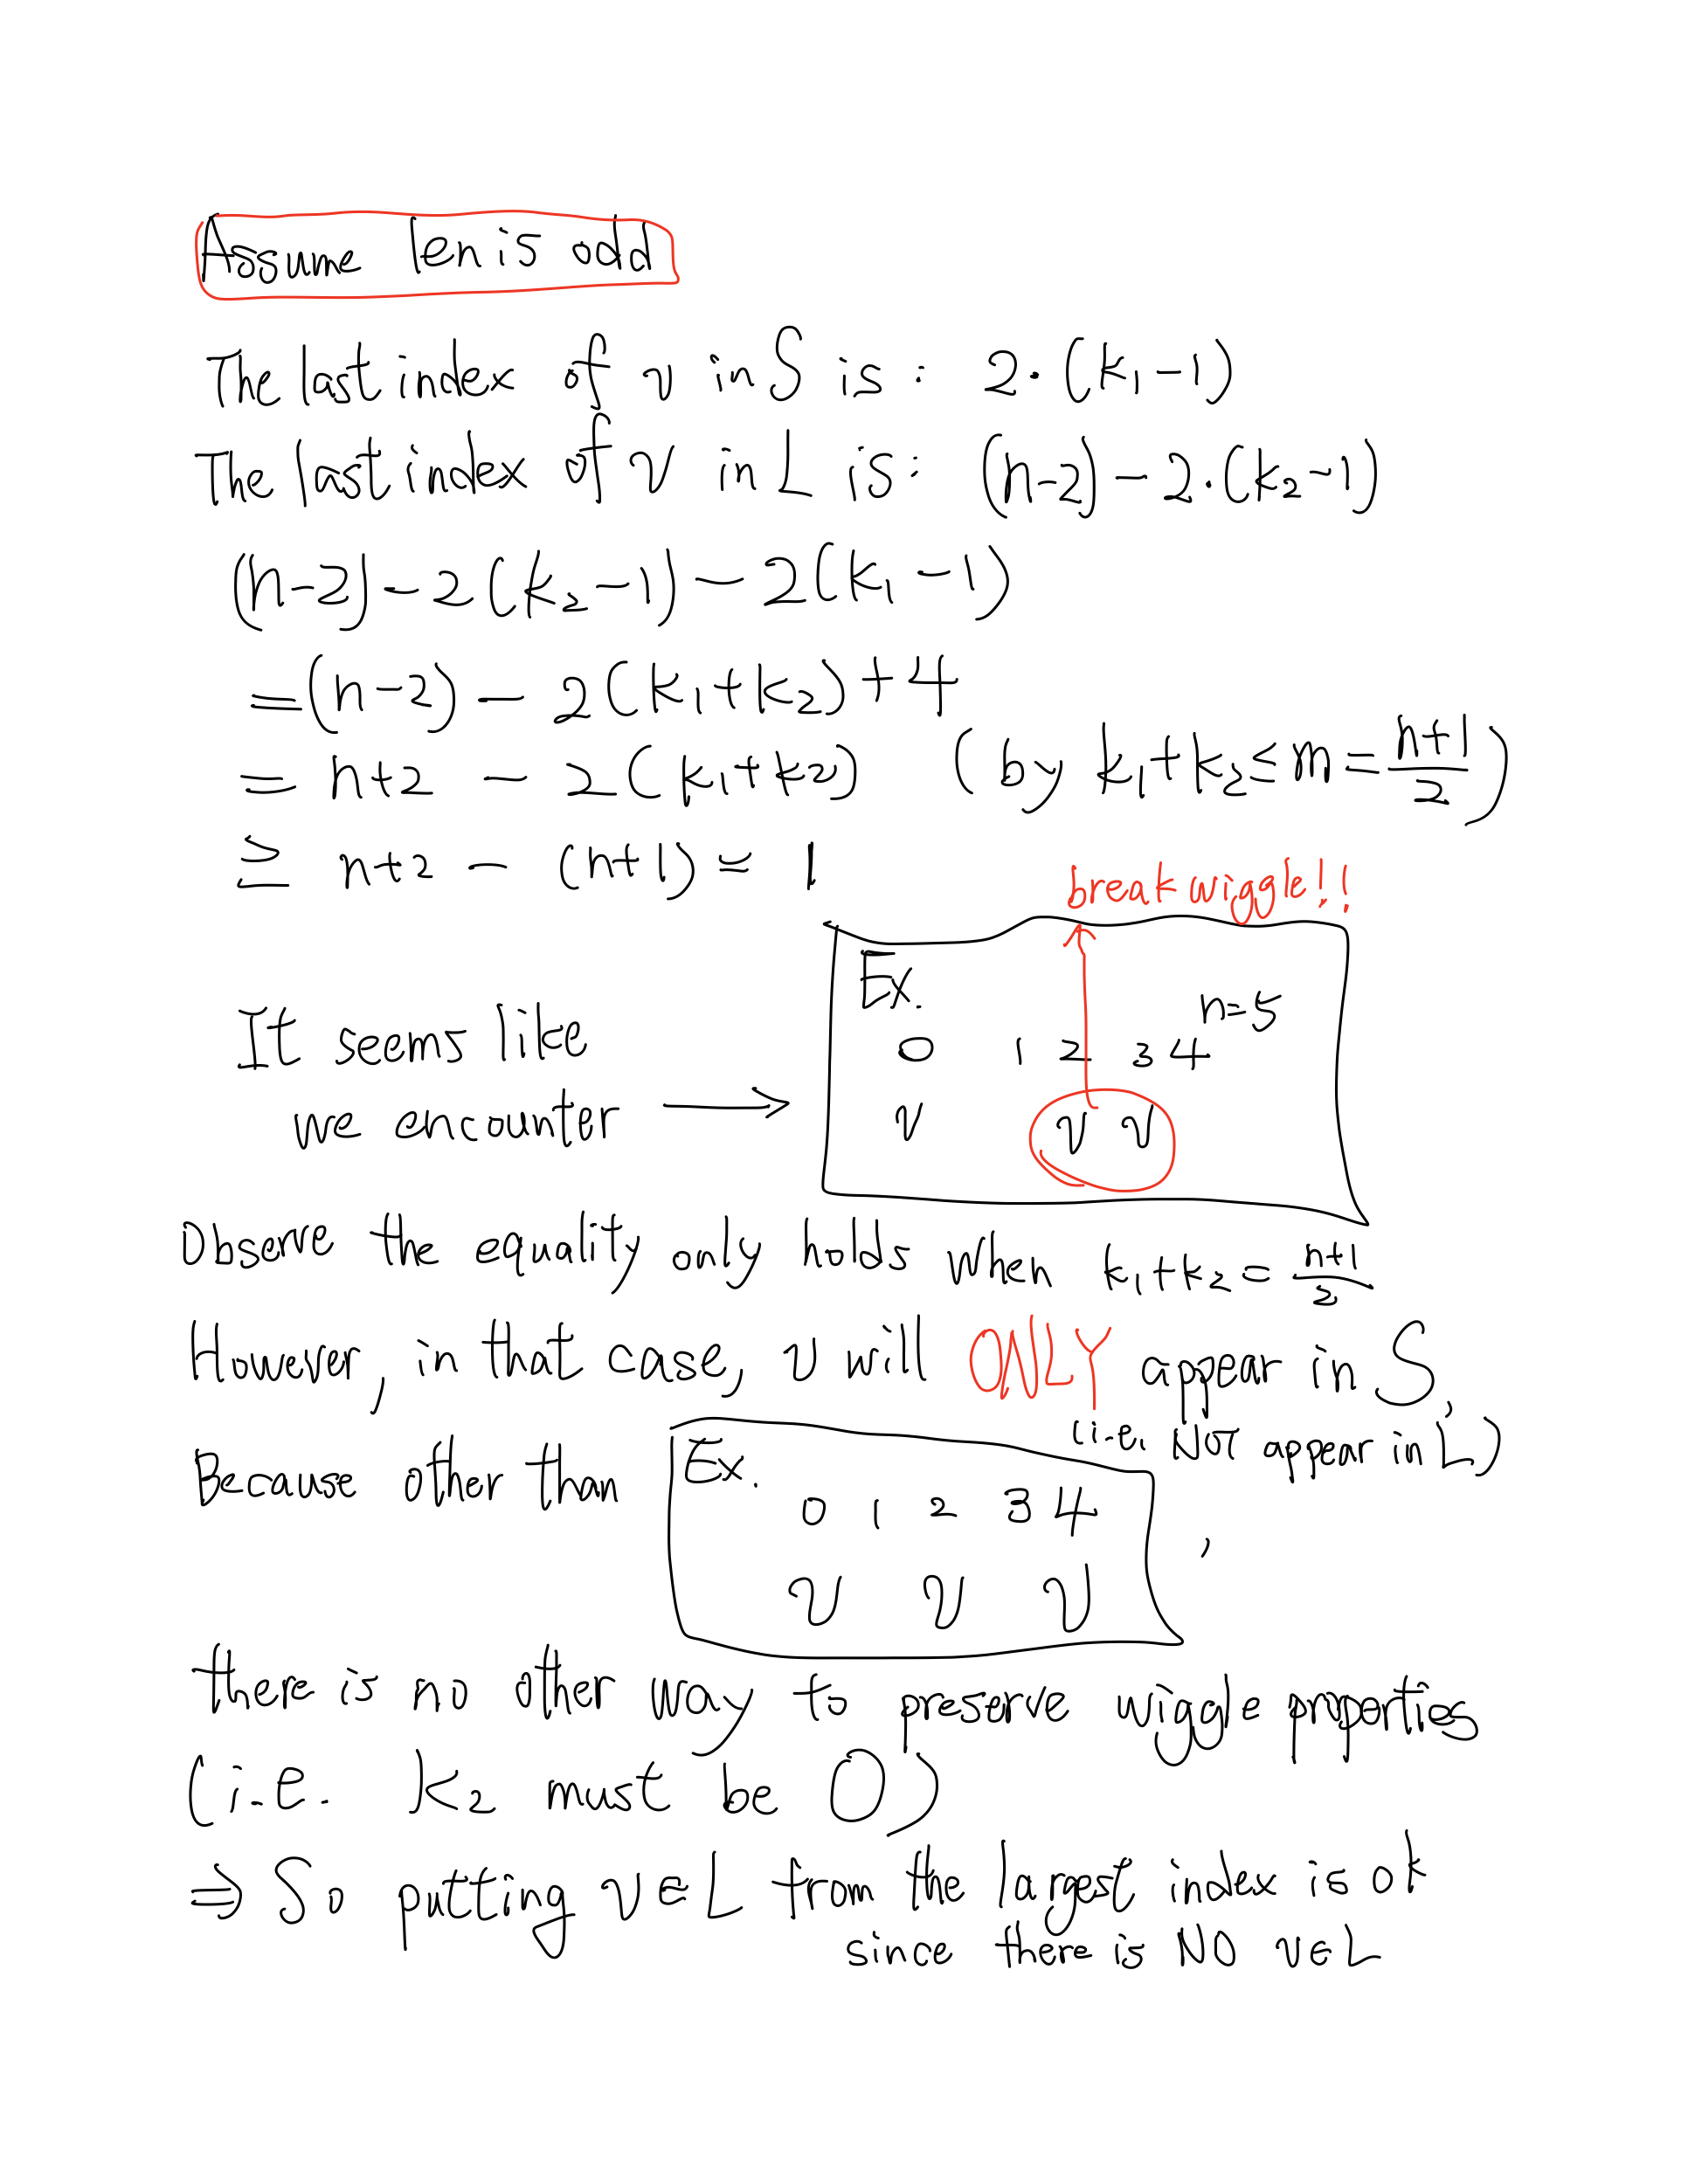 Assume len is odd
The last index of v in S is: 2·(k₁-1)
The last index of v in L is: (n-2)-2·(k₂-1)
(n-2)-2(k₂-1)-2(k₁-1)
=(n-2)-2(k₁+k₂)+4
= n+2 - 2(k₁+k₂) (by k₁+k₂≤m=\frac{n+1}{2})
≥ n+2 - (n+1) = 1
break wiggle!!
Ex.
n=5
0 1 2 3 4
v v v
It seems like
we encounter →
Observe the equality only holds when k₁+k₂=\frac{n+1}{2}
However, in that case, v will ONLY appear in S,
(i.e. NOT appear in L)
Because other than
Ex.
0 1 2 3 4
v v v
,
there is no other way to preserve wiggle properties
(i.e. k₂ must be 0)
⇒ So putting v∈L from the largest index is ok
since there is NO v∈L